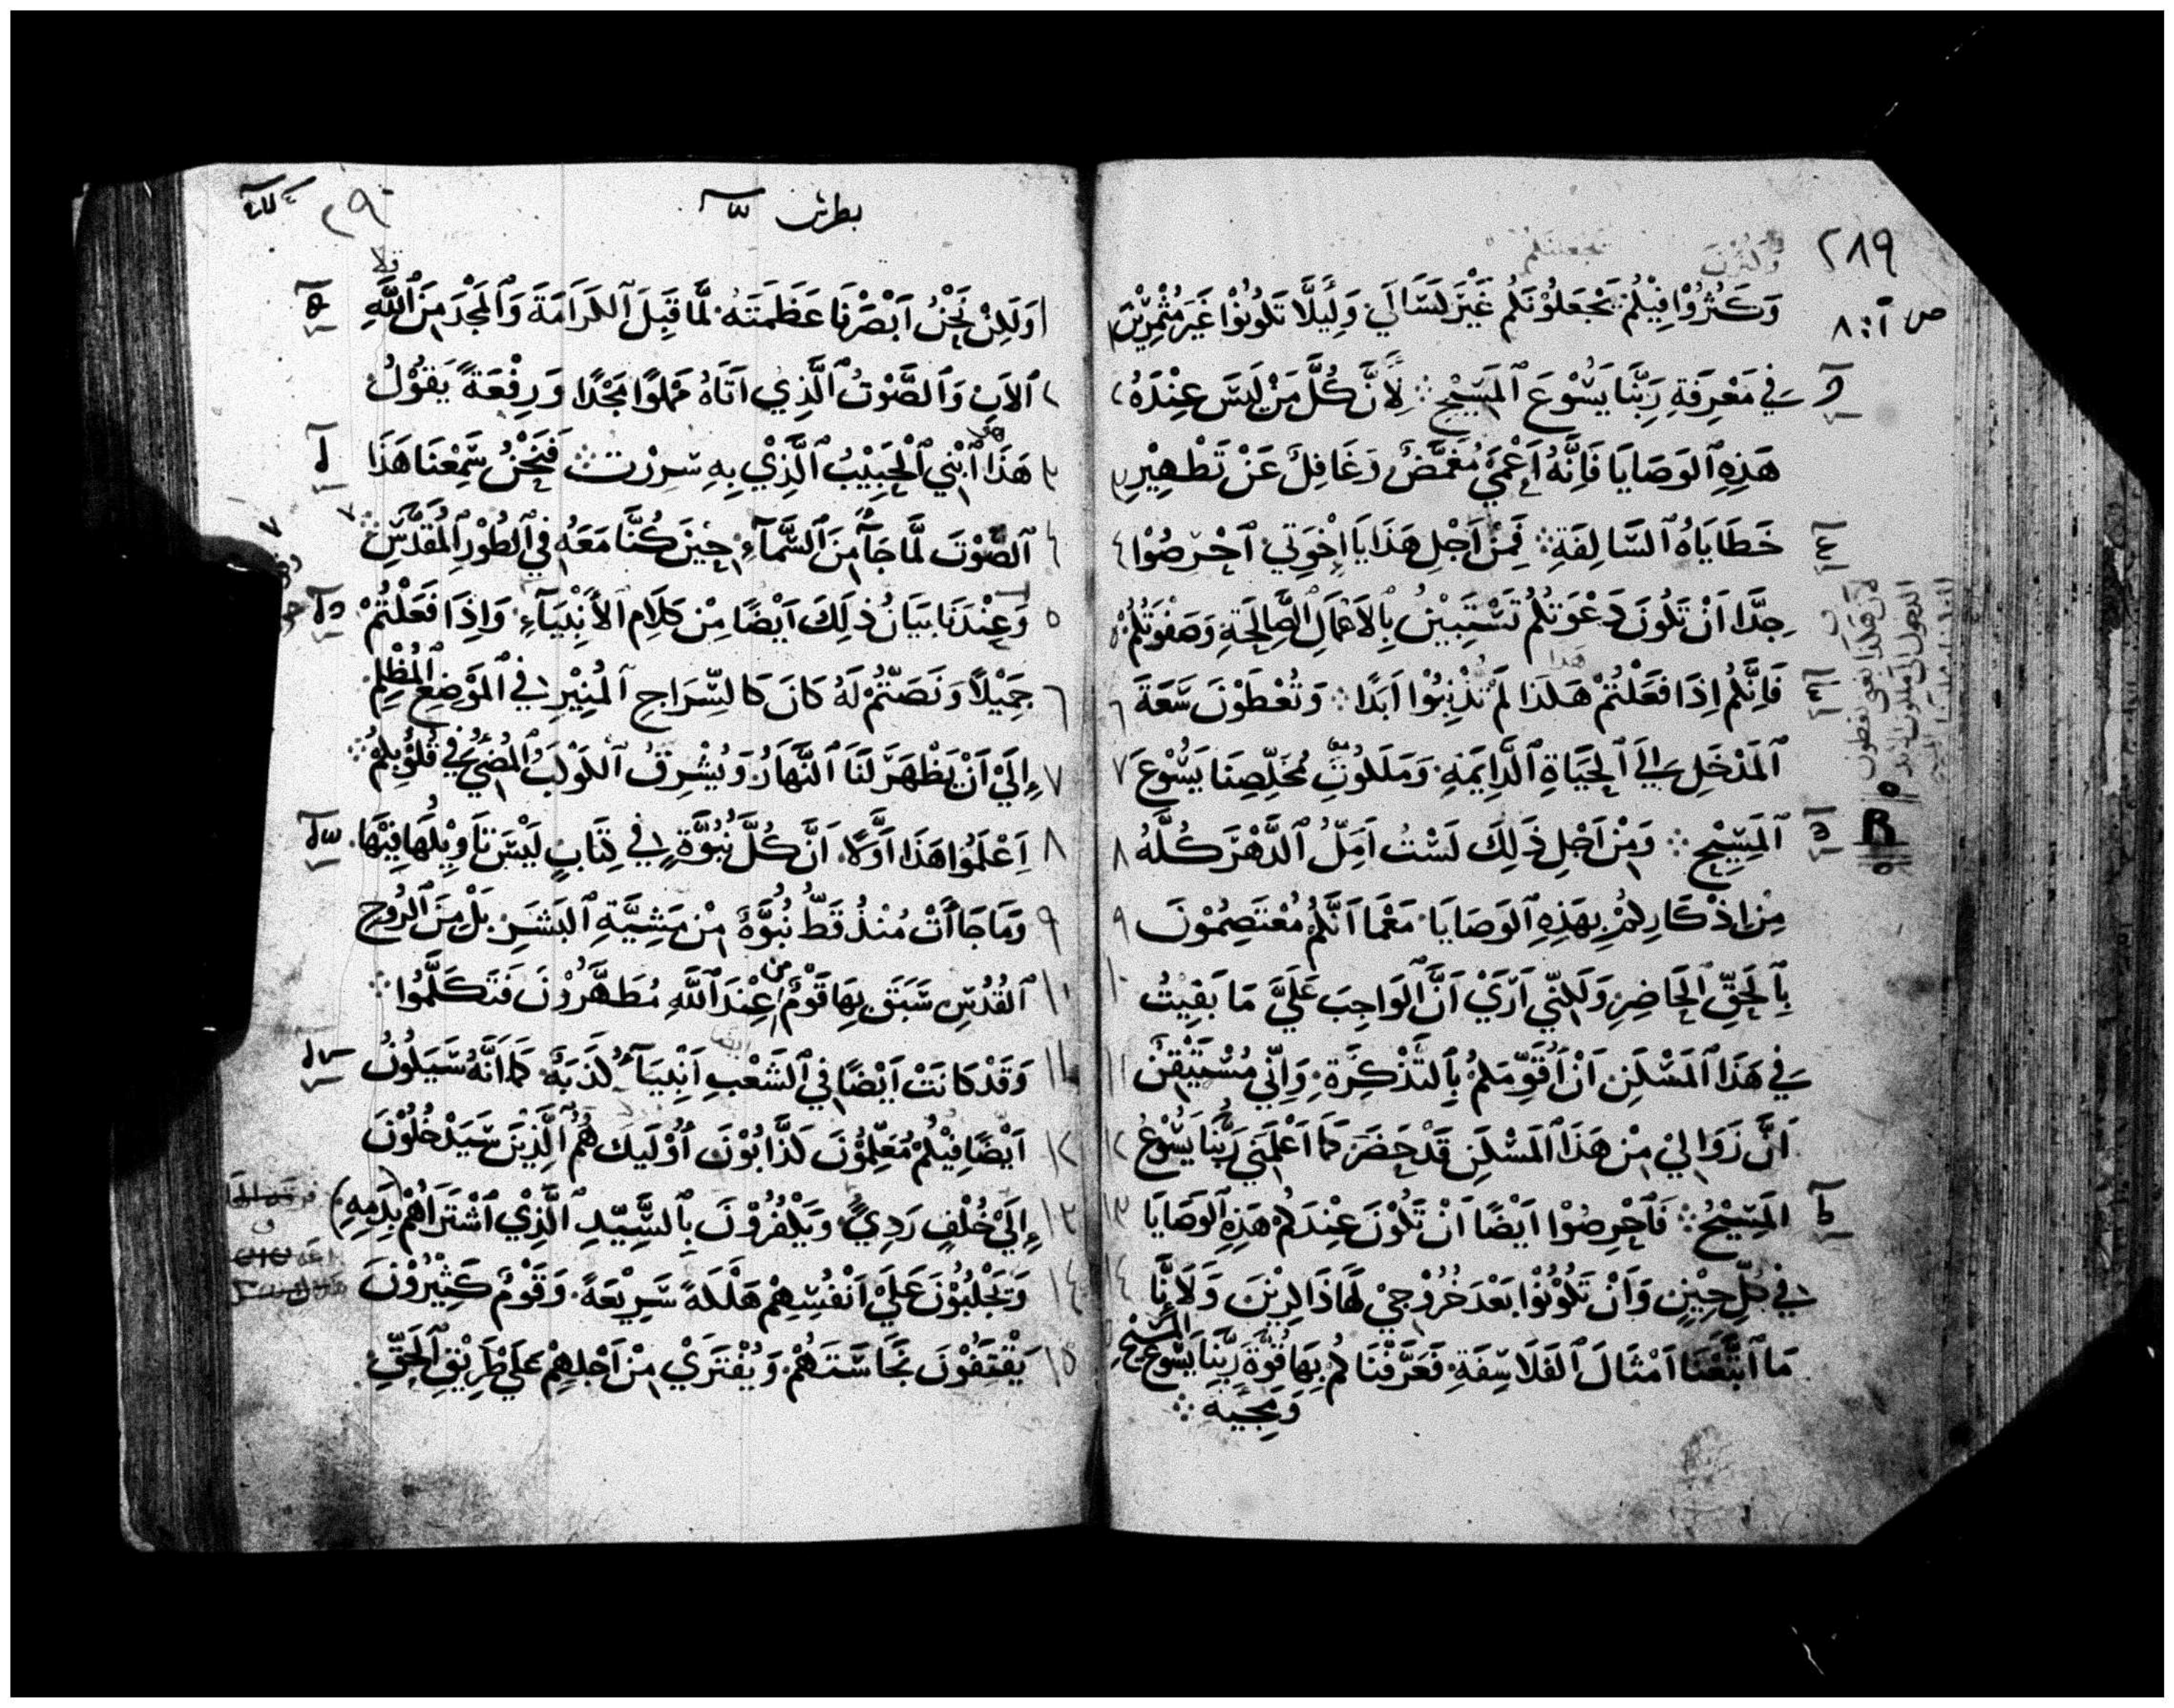 ٢٨٩
ص آ : ٨
وَكَثُرُوْا فِيْكُمْ تَجْعَلُوْنَكُم غَيْرَ كَسَالَي وَلِيَلَّا تَكُوْنُوْا غَيْرَ مُثْمِرِيْنَ ١
فِي مَعْرِفَةِ رَبِّنَا يَسُوْعَ ٱلمَسِيْحِ ܀ لِأَنَّ كُلَّ مَنْ لَيْسَ عِنْدَهُ ٢
هَذِهِ ٱلوَصَايَا فَاِنَّهُ اَعْمَيْ مُغَمَّضٌ وَغَافِلٌ عَنْ تَطْهِيْرِ ٣
خَطَايَاهُ ٱلسَّالِفَةِ ܀ فَمِنْ اَجْلِ هَذَا يَا اِخْوَتِي ٱحْرِصُوْا ٤
جِدًّا اَنْ تَكُونَ دَعْوَتُكُمْ تَسْتَبِيْنُ بِٱلاَعْمَالِ ٱلصَّالِحَةِ وَصَفْوَتُكُمْ ٥
فَاِنَّكُمْ اِذَا فَعَلْتُمْ هَكَذَا لَمْ تُذْنِبُوْا اَبَدًا ܀ وَتُعْطَوْنَ سَعَةَ ٦
ٱلمَدْخَلِ اِلَي ٱلحَيَاةِ ٱلدَّايِمَةِ وَمَلَكُوْتِ مُخَلِّصِنَا يَسُوْعَ ٧
ٱلمَسِيْحِ ܀ وَمِنْ اَجْلِ ذَلِكَ لَسْتُ اَمِلُّ ٱلدَّهْرَ كُلَّهُ ٨
مِنْ اِذْكَارِكُمْ بِهَذِهِ ٱلوَصَايَا مَعْمَا اَنَّكُمْ مُعْتَصِمُوْنَ ٩
بِٱلحَقِّ ٱلحَاضِرِ وَلَكِنِّي اَرَي اَنَّ ٱلوَاجِبَ عَلَيَّ مَا بَقِيْتُ ١٠
فِي هَذَا ٱلمَسْكَنِ اَنْ اُقَوِّمَكُمْ بِٱلتَّذْكِرَةِ وَاِنِّي مُسْتَيْقِنٌ ١١
اَنَّ زَوَالِيْ مِنْ هَذَا ٱلمَسْكَنِ قَدْ حَضَرَ كَمَا اَعْلَمَنِي رَبُّنَا يَسُوْعُ ١٢
المَسِيْحُ ܀ فَٱحْرِصُوْا اَيْضًا اَنْ تَكُوْنَ عِنْدَكُمْ هَذِهِ ٱلوَصَايَا ١٣
فِي كُلِّ حِيْنٍ وَاَنْ تَكُوْنُوْا بَعْدَ خُرُوْجِيْ لَهَا ذَاكِرِيْنَ وَلَاِنَّا ١٤
مَا ٱتَّبَعْنَا اَمْثَالَ ٱلفَلَاسِفَةِ فَعَرَّفْنَاكُمْ بِهَا قُوَّةَ رَبِّنَا يَسُوْعَ المَسِيْحِ
وَمَجِيَّهُ ܀
بطرس
١ وَلَكِنْ نَحْنُ اَبْصَرْنَا عَظَمَتَهُ لَمَّا قَبِلَ ٱلكَرَامَةَ وَٱلمَجْدَ مِنَ ٱللَّهِ
٢ ٱلاَبِ وَٱلصَّوْتُ ٱلَّذِي اَتَاهُ مَمْلُوًا مَجْدًا وَرِفْعَةً يَقُوْلُ
٣ هَذَا هو ٱبْنِي ٱلحَبِيْبُ ٱلَّذِيْ بِهِ سُرِرْتُ ܀ فَنَحْنُ سَمِعْنَا هَذَا
٤ ٱلصَّوْتَ لَمَّا جَآَ مِنَ ٱلسَّمَآءِ حِيْنَ كُنَّا مَعَهُ فِي ٱلطُوْرِ ٱلمُقَدَّسِ ܀
٥ وَعِنْدَنَا بَيَانُ ذٰلِكَ اَيْضًا مِنْ كَلَامِ ٱلأَنْبِيَآءِ وَاِذَا فَعَلْتُمْ
٦ جَمِيْلاً وَنَصَتُّمْ لَهُ كَانَ كَالسِّرَاجِ ٱلمُنِيْرِ فِي ٱلمَوْضِعِ ٱلمُظْلِمِ
٧ اِلَيْ اَنْ يَظْهَرَ لَنَا ٱلنَّهَارُ وَيُشْرِقُ ٱلكَوْكَبُ ٱلمُضِيْءُ فِي قُلُوْبِكُمْ ܀
٨ اِعْلَمُوا هَذَا اَوَّلًا اَنَّ كُلَّ نُبُوَّةٍ فِي كِتَابٍ لَيْسَ تَاوِيْلُهَا فِيْهَا
٩ وَمَا جَاأَتْ مُنْذُ قَطُّ نُبُوَّةٌ مِنْ مَشِيَّةِ ٱلبَشَرِ بَلْ مِنَ ٱلرُوحِ
١٠ ٱلقُدُسِ سَبَقَ بِهَا قَوْمٌ من عِنْدَ ٱللَّهِ مُطَهَّرُوْنَ فَتَكَلَّمُوا ܀
١١ وَقَدْ كَانَتْ اَيْضًا فِي ٱلشَعْبِ اَنْبِيَآءُ كَذَبَةٌ كَمَا اَنَّهُ سَيَكُوْنُ
١٢ اَيْضًا فِيْكُمْ مُعَلِّمُوْنَ كَذَّابُوْنَ اُوْلَيِكَ هُمُ ٱلَّذِيْنَ سَيَدْخُلُوْنَ
١٣ اِلَيْ خُلْفٍ رَدِيٍّ وَيَكْفُرُوْنَ بِٱلسَّيِّدِ ٱلَّذِيْ ٱشْتَرَاهُمْ (بِدَمِهِ)
١٤ وَيَجْلُبُوْنَ عَلَيْ اَنْفُسِهِمْ هَلَكَةً سَرِيْعَةً وَقَوْمٌ كَثِيْرُوْنَ
١٥ يَقْتَفُوْنَ نَجَاسَتَهُمْ وَيُفْتَرَيْ مِنْ اَجْلِهِمْ عَلَي طَرِيْقِ ٱلحَقِّ